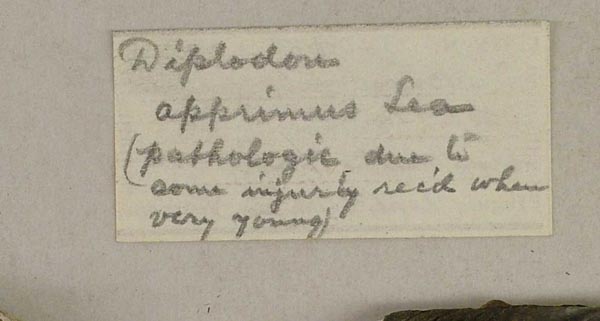 Diplodon
apprimus Lea
(pathologic due to
some injury rec'd when
very young)